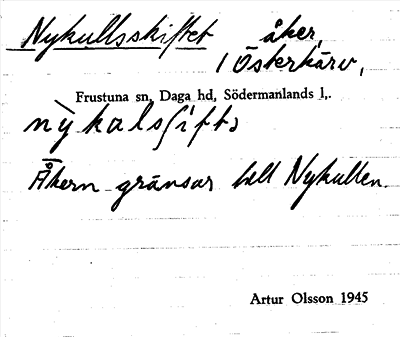 Nykullsskiftet åker,
i Österkärv,
Frustuna sn, Daga hd, Södermanlands l,.
Åkern gränsar till Nykullen.
Artur Olsson 1945